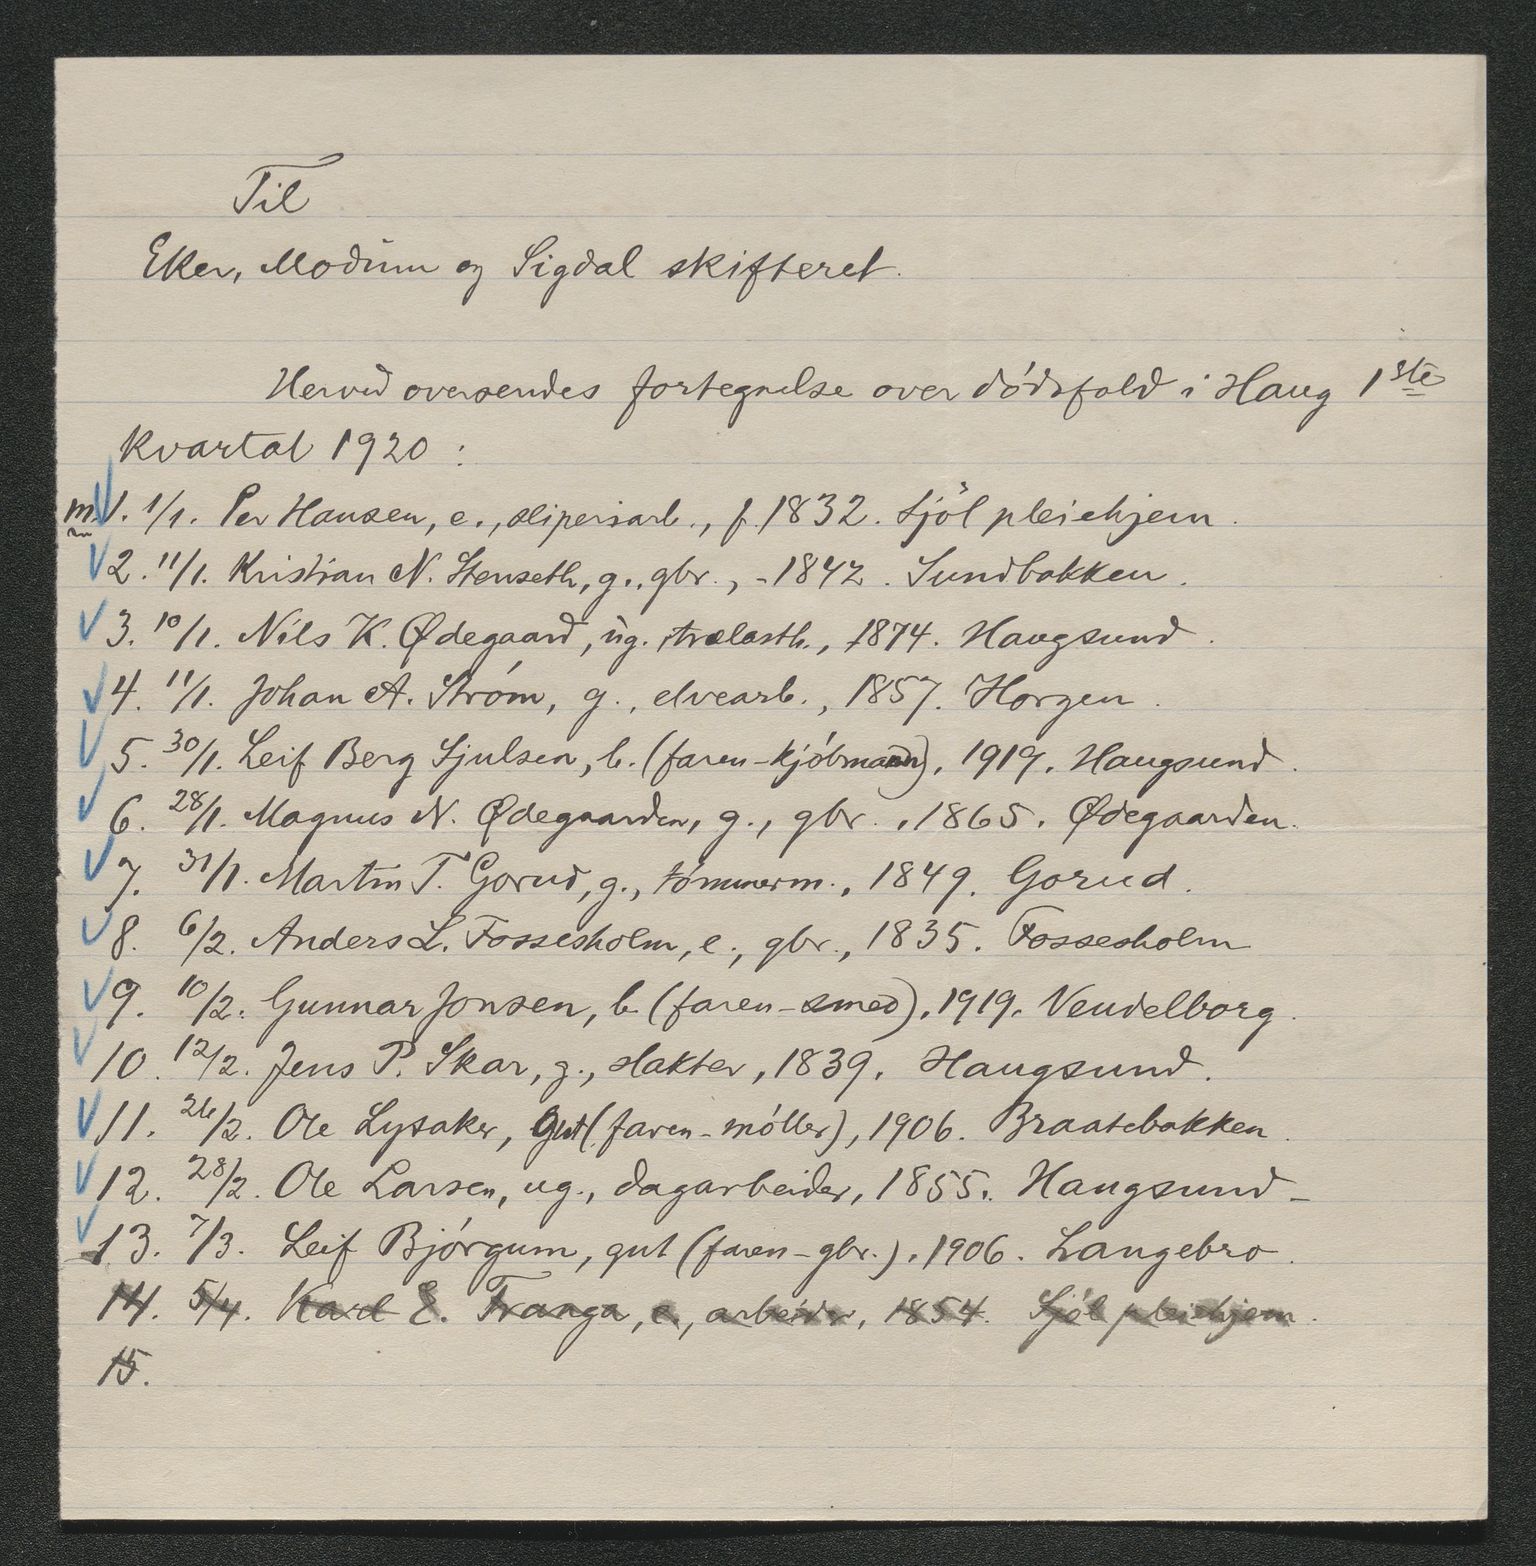 Til
Eker, Modum og Sigdal skifteret.
Herved oversendes fortegnelse over dódsfald i Haug 1ste
kvartal 1920 :
m. 1. 1/1. Per Hansen, e., slipersarb., f. 1832. Sjöl pleiehjem.
2. 11/1. Kristian N. Stenseth, g., gbr., - 1842. Sundbakken.
3. 10/1. Nils K. Ødegaard, ug. trælasth., 1874. Haugsund.
4. 11/1. Johan A. Stróm, g., elvearb., 1857. Horgen.
5. 30/1. Leif Berg Sjulsen, b. (faren - kjóbmand), 1919. Haugsund.
6. 28/1. Magnus N. Ødegaarden, g., gbr., 1865. Ødegaarden.
7. 31/1. Martin T. Gorud, g., tómmerm., 1849. Gorud.
8. 6/2. Anders L. Fossesholm, e., gbr., 1835. Fossesholm
9. 10/2. Gunnar Jonsen, b. (faren - smed), 1919. Vendelborg.
10. 12/2. Jens P. Skar, g., slakter, 1839. Haugsund.
11. 26/2. Ole Lysaker, gut (faren - móller), 1906. Braatebakken.
12. 28/2. Ole Larsen, ug., dagarbeider, 1855. Haugsund -
13. 7/3. Leif Bjórgum, gut (faren - gbr.), 1906. Langebro.
14. 5/4. Karl E. Tranga, e., arbeider, 1854. Sjól pleiehjem.
15.